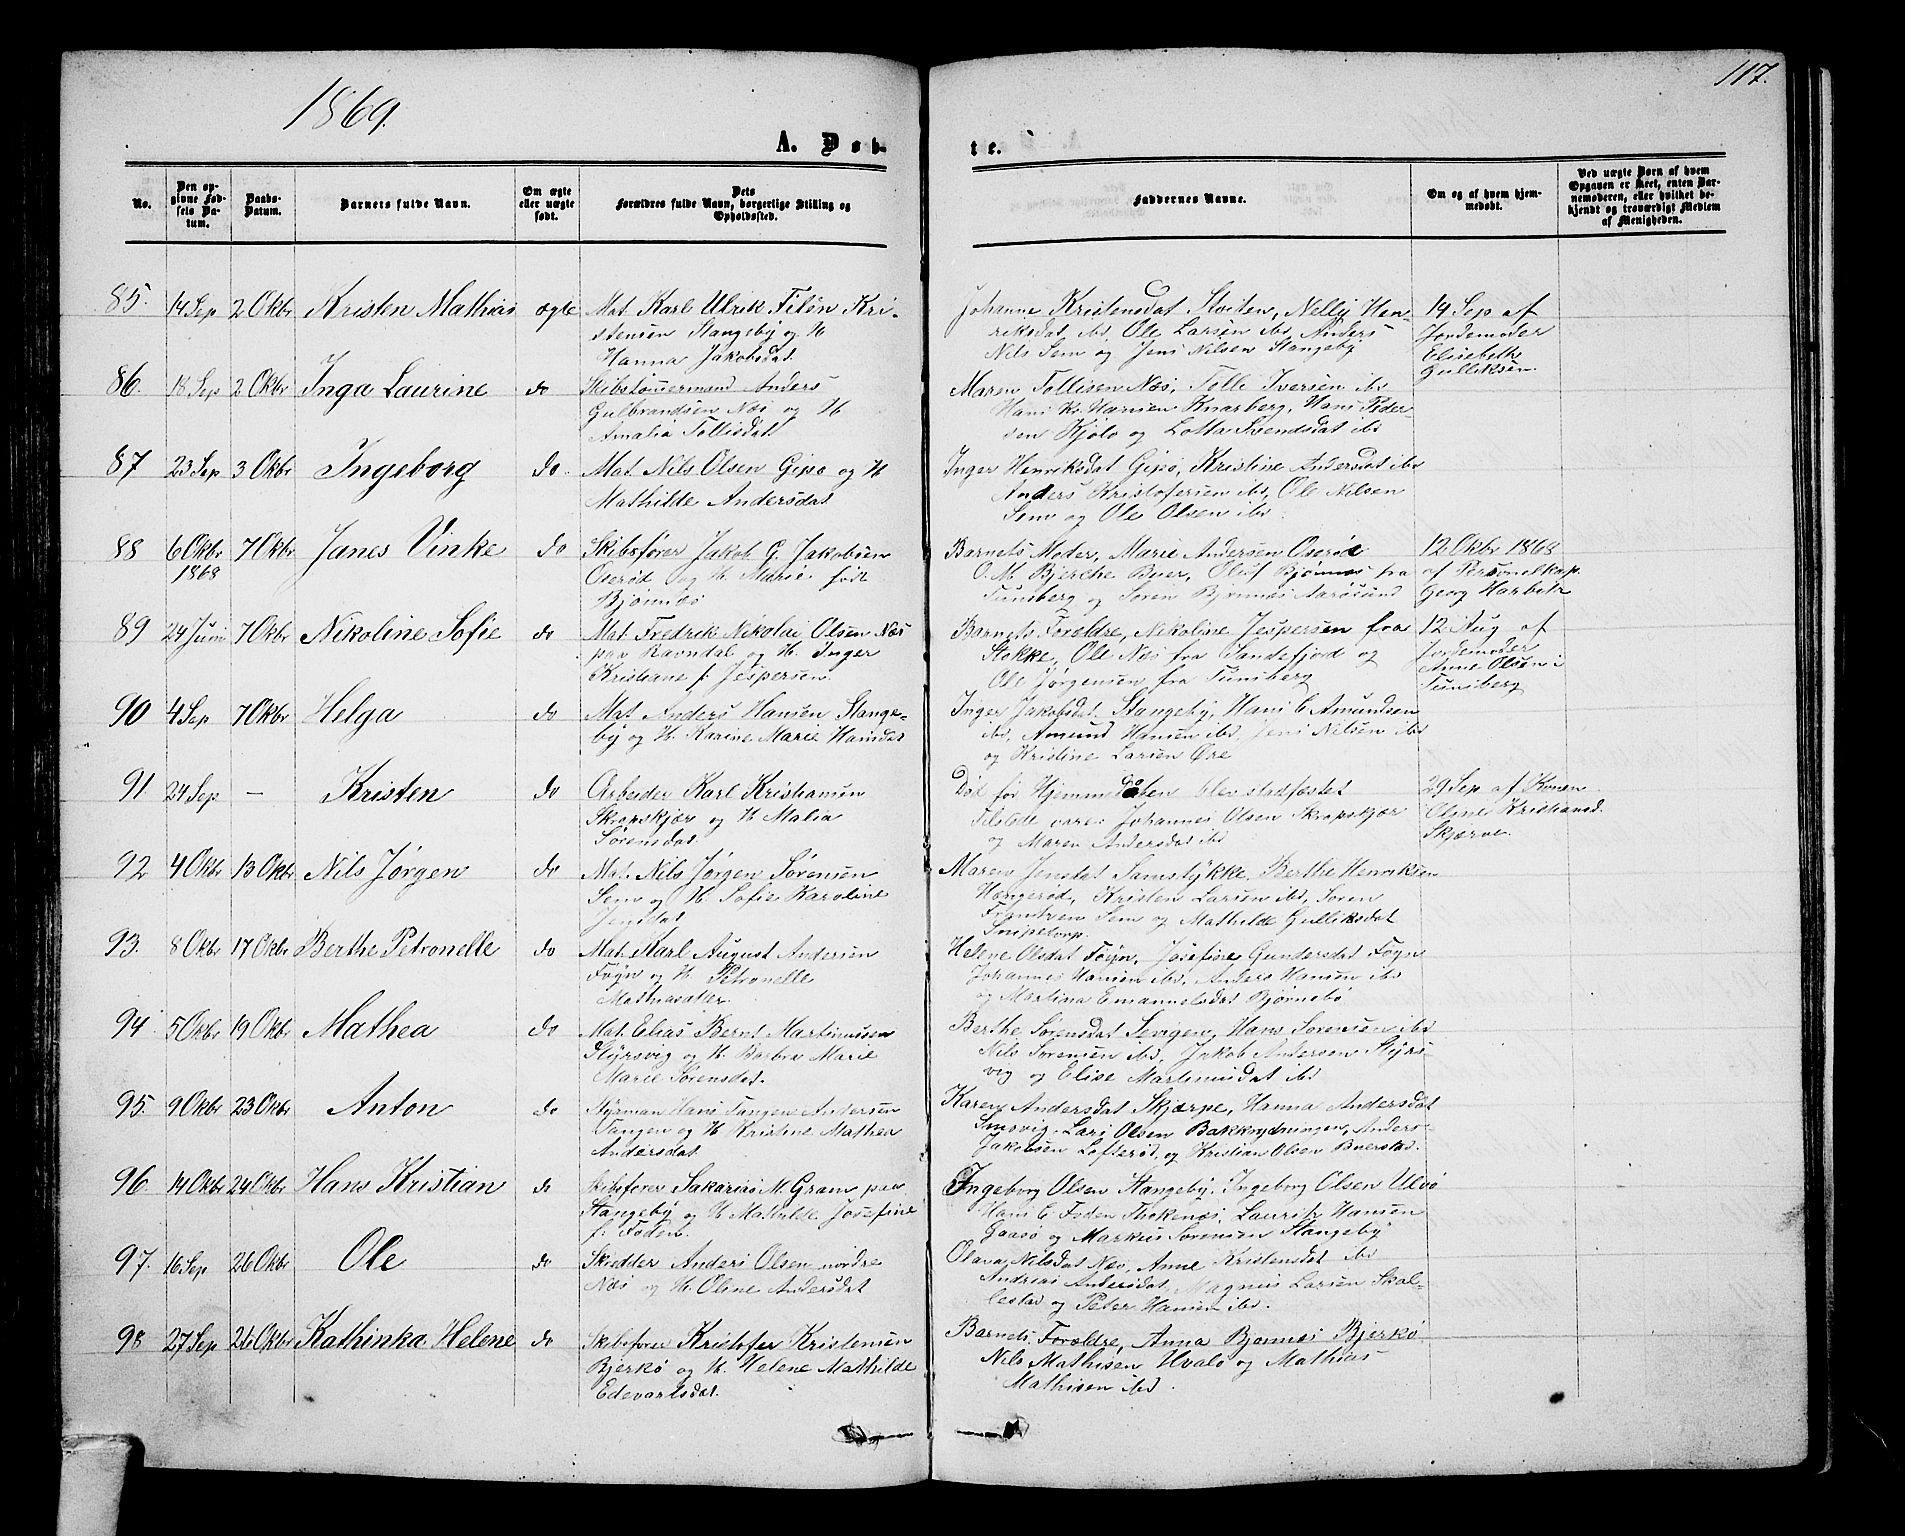 1869.
117.
A. Døb-
te.
No.
Den op-
givne Fød-
sels Da-
tum.
Daabs-
Datum.
Barnets fulde Navn.
Om ægte
eller uægte
født.
Dets
Forældres fulde Navn, borgerlige Stilling og
Opholdssted.
Faddernes Navne.
Om og af hvem hjem-
medøbt.
Ved uægte Børn af hvem
Opgaven er skeet, enten Bar-
nemoderen, eller hvilket be-
kjendt og troværdigt Medlem
af Menigheden.
85. 14 Sep 2 Okbr Kristen Mathias ægte Mat. Karl Ulrik Kri-
stensen Stangeby og H
Hanna Jakobsdat.
Johanne Kristensdat Nelly Hen-
reksdat ibs, Ole Larsen ibs, Anders
Nils Sem og Jens Nilsen Stangeby
14 Sep af
Jordemoder
Elisebeth
Gulliksen.
86. 18 Sep 2 Okbr Inga Laurine do Skibstømermand Anders
Gulbrandsen Næs og H
Amalia Tollisdat
Maren Tollisen Næs, Tolli Iversen ibs
Hans Kr. Hansen Knarberg, Hans Peder-
sen Kjølø og Lotta Svendsdat ibs
87 23 Sep 3 Okbr Ingeborg do. Mat. Nils Olsen Gipø og H
Mathilde Andersdat
Inger Henriksdat Gipø, Kristine Andersdat ibs
Anders Kristofersen ibs, Ole Nilsen
Sem og Ole Olsen ibs.
88 6 Okbr 7 Okbr Janes Vinke do Skibsfører Jakob G. Jakobsen
1868
Oserød og H. Marie født
Bjønnes
Barnets Moder, Marie Andersen Oserød
O. M. Bjerche Buer, Oluf Bjønnes fra
Tunsberg og Søren Bjønnes Aarøsund
12 Okbr 1868
af Personelkap.
Georg Harbitz
89 24 Juni 7 Okbr Nikoline Sofie do Mat. Fredrik Nikolai Olsen Næs
paa Ravndal og H. Inger
Kristiane f. Jespersen.
Barnets Forældre, Nikoline Jespersen fra
Stokke, Ole Næs fra Sandefjord og
Ole Jørgensen fra Tunsberg
12 Aug af
Jordemoder
Anne Olsen i
Tunsberg
90 4 Sep 7 Okbr Helga do Mat. Anders Hansen Stange-
by og H. Karine Marie Hansdat
Inger Jakobsdat Stangeby, Hans C Amundsen
ibs, Amund Hansen ibs, Jens Nilsen ibs
og Kristine Larsen Øre
91 24 Sep — Kristen do Arbeider Karl Kristiansen
Skrapskjær og H Malia
Sørensdat.
Død før Hjemmedaaben blev stadfæstet
Tilstede vare: Johannes Olsen Skrapskjær
og Maren Andersdat ibs
29 Sep af Konen
Olene Kristiansd.
Skjærve.
92 4 Okbr 13 Okbr Nils Jørgen do Mat. Nils Jørgen Sørensen
Sem og H Sofie Karoline
Jensdat
Maren Jensdat Samstykke, Berthe Henriksen
Hengerød, Kristen Larsen ibs, Søren
Frantzen Sem og Mathilde Gulliksdat
Snipetorp.
93. 8 Okbr 17 Okbr Berthe Petronelle do Mat. Karl August Andersen
Føyn og H Petronelle
Mathiasatter.
Helene Olsdat Føyn, Josefine Gundersdat Føyn
Johannes Hansen ibs, Anders Hansen ibs
og Martina Emanuelsdat Bjørnebø
94 5 Okbr 19 Okbr Mathea do Mat. Elias Bernt Martinussen
Styrsvig og H. Barbra Marie
Marie Sørensdat.
Berthe Sørensdat Sevigen, Hans Sørensen ibs
Nils Sørensen ibs, Jakob Andersen Styrs-
vig og Elise Martinusdat ibs
95. 9 Okbr 23 Okbr Anton do Styrman Hans Tangen Andersen
Tangen og H Kristine Mathea
Andersdat
Karen Andersdat Skjærpe, Hanna Andersdat
Smøvig, Lars Olsen Bakkrydningen, Anders
Jakobsen Lofterød, og Kristian Olsen Buerstad.
96 14 Okbr 24 Okbr Hans Kristian do Skibsfører Sakarias M. Gram paa
Stangeby og H Mathilde Josefine
f. Foden.
Ingeborg Olsen Stangeby, Ingeborg Olsen Ulvø
Hans C. Foden Thokenæs, Lauritz Hansen
Gaasø og Markus Sørensen Stangeby
97. 16 Sep 26 Okbr Ole do Skedder Anders Olsen nordre
Næs og H. Oline Andersdat
Olava Nilsdat Næs, Anne Kristensdat ibs
Andrias Andersdat, Magnus Larsen Skal-
lestad og Peter Hansen ibs.
98 27 Sep 26 Okbr Kathinka Helene do Skibsfører Kristofer Kristensen
Bjerkø og H. Helene Mathilde
Edevartsdat.
Barnets Forældre, Anna Bjønnes Bjerkø
Nils Mathisen Hvalø og Mathias
Mathisen ibs.